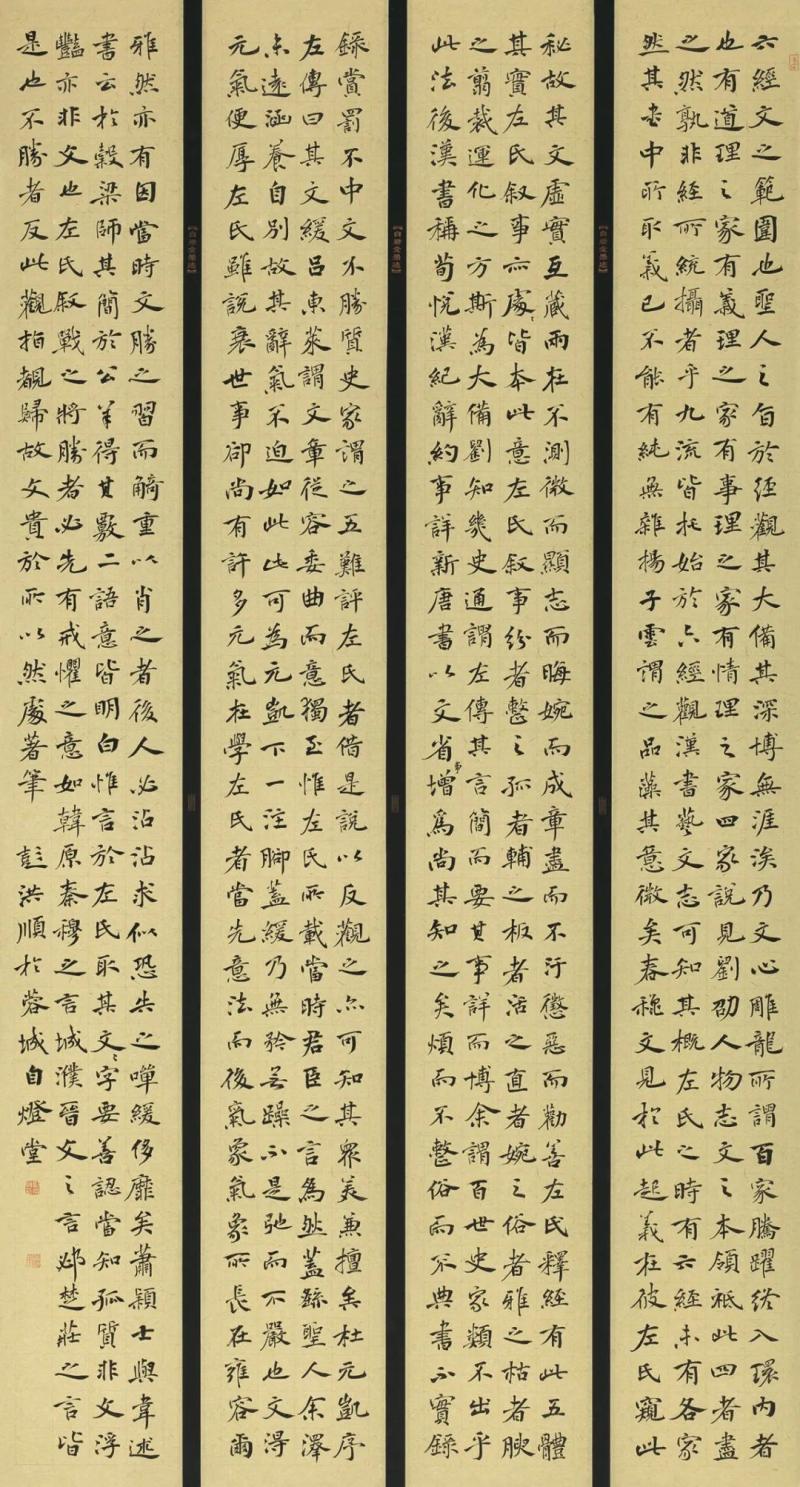 六經文之範圍也聖人之旨於經觀其大備其深博無涯涘乃文心雕龍所謂百家騰躍終入環內者
也有道理之家有義理之家有事理之家有情理之家四家說見劉劭人物志文之本領祇此四者盡
之然孰非經所統攝者乎九流皆托始於六經觀漢書藝文志可知其概左氏之時有六經未有各家
然其書中所取義已不能有純無雜揚子雲謂之品藻其意微矣春秋文見於此起義在彼左氏窺此
秘故其文虛實互藏兩在不測微而顯志而晦婉而成章盡而不汙懲惡而勸善左氏釋經有此五體
其實左氏敘事亦處處皆本此意左氏敘事紛者整之孤者輔之板者活之直者婉之俗者雅之枯者腴
之翦裁運化之方斯為大備劉知幾史通謂左傳其言簡而要其事詳而博余謂百世史家類不出乎
此法後漢書稱荀悅漢紀辭約事詳新唐書以文省事增為尚其知之矣煩而不整俗而不典書不實錄
錄賞罰不中文不勝質史家謂之五難評左氏者借是說以反觀之亦可知其眾美兼擅矣杜元凱序
左傳曰其文緩呂東萊謂文章從容委曲而意獨至惟左氏所載當時君臣之言為然蓋繇聖人余澤
未遠涵養自別故其辭氣不迫如此此可為元凱下一注腳蓋緩乃無矜無躁不是弛而不嚴也文得
元氣便厚左氏雖說衰世事卻尚有許多元氣在學左氏者當先意法而後氣象氣象所長在雍容爾
雅然亦有因當時文勝之習而觭重以肖之者後人必沾沾求似恐失之嘽緩侈靡矣蕭穎士與韋述
書云於穀梁師其簡於公羊得其覈二語意皆明白惟言於左氏取其文文字要善認當知孤質非文浮
豔亦非文也左氏敘戰之將勝者必先有戒懼之意如韓原秦穆之言城濮晉文之言邲楚莊之言皆
是也不勝者反此觀指覩歸故文貴於所以然處著筆 彭洪順於蓉城白燈堂